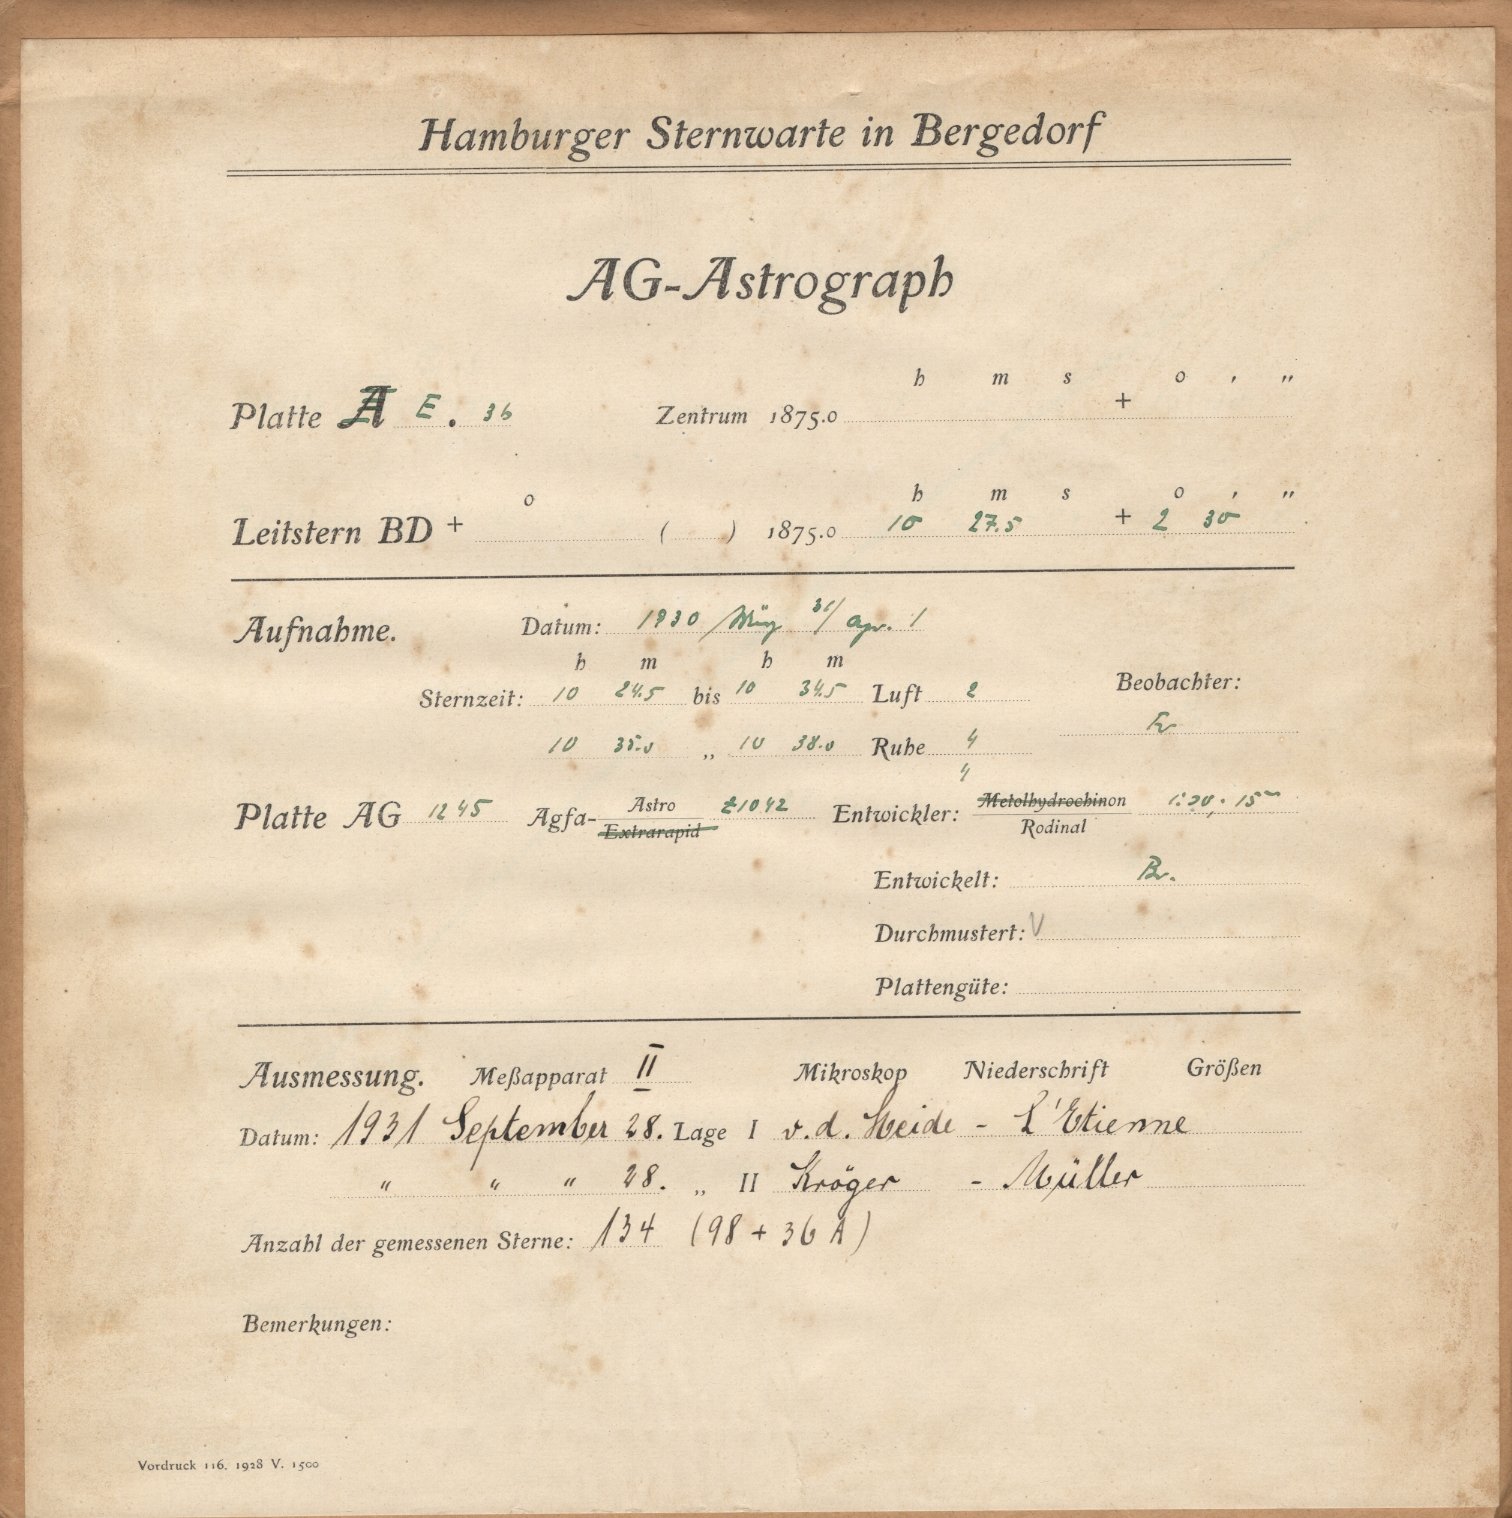 Hamburger Sternwarte in Bergedorf
AG-Astrograph
h m s o ' "
Platte A E . 36 Zentrum 1875.0 +
o h m s o ' "
Leitstern BD + ( ) 1875.0 10 27.5 + 2 30
Aufnahme. Datum: 1930 März 31/Apr. 1
h m h m
Sternzeit: 10 24.5 bis 10 34.5 Luft 2 Beobachter:
10 35.0 „ 10 38.0 Ruhe 4
4
Platte AG 1245 Agfa- Astro Extrarapid Z1042 Entwickler: Metolhydrochinon Rodinal 1:20, 15m
Entwickelt: Br.
Durchmustert: V
Plattengüte:
Ausmessung. Meßapparat II Mikroskop Niederschrift Größen
Datum: 1931 September 28. Lage I v. d. Heide - L'Etienne
" " " 28. „ II Kröger - Müller
Anzahl der gemessenen Sterne: 134 (98 + 36 A)
Bemerkungen:
Vordruck 116. 1928 V. 1500